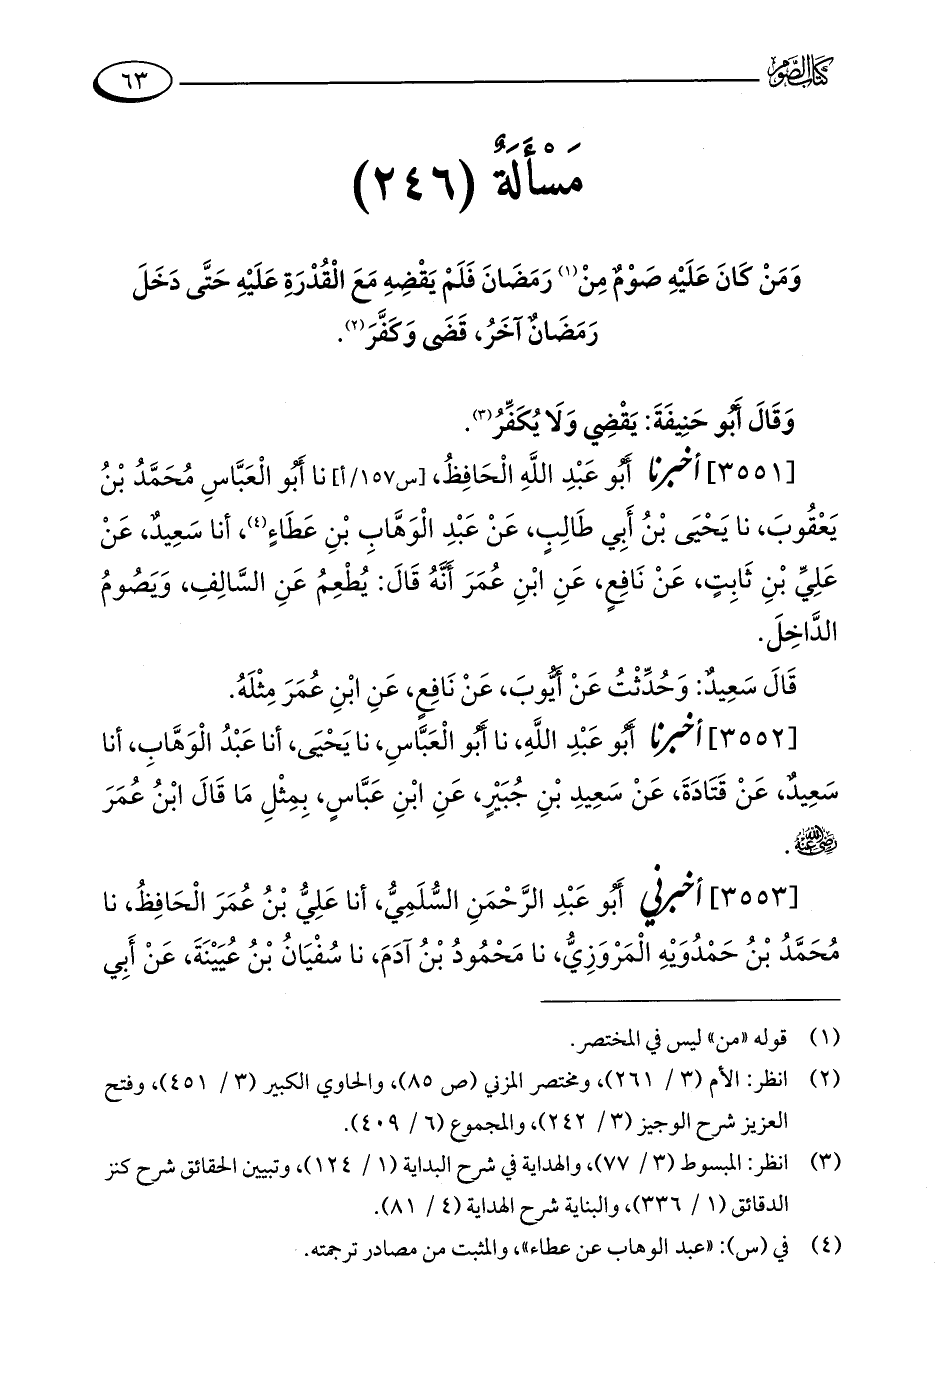 كتاب الصوم
٦٣
مَسْأَلَةٌ (٢٤٦)
وَمَنْ كَانَ عَلَيْهِ صَوْمٌ مِنْ(١) رَمَضَانَ فَلَمْ يَقْضِهِ مَعَ الْقُدْرَةِ عَلَيْهِ حَتَّى دَخَلَ
رَمَضَانٌ آخَرُ، قَضَى وَكَفَّرَ(٢).
وَقَالَ أَبُو حَنِيفَةَ: يَقْضِي وَلَا يُكَفِّرُ(٣).
[٣٥٥١] أخبرنا أَبُو عَبْدِ اللَّهِ الْحَافِظُ، [س١٥٧/أ] نا أَبُو الْعَبَّاسِ مُحَمَّدُ بْنُ
يَعْقُوبَ، نا يَحْيَى بْنُ أَبِي طَالِبٍ، عَنْ عَبْدِ الْوَهَّابِ بْنِ عَطَاءٍ(٤)، أنا سَعِيدٌ، عَنْ
عَلِيِّ بْنِ ثَابِتٍ، عَنْ نَافِعٍ، عَنِ ابْنِ عُمَرَ أَنَّهُ قَالَ: يُطْعِمُ عَنِ السَّالِفِ، وَيَصُومُ
الدَّاخِلَ.
قَالَ سَعِيدٌ: وَحُدِّثْتُ عَنْ أَيُّوبَ، عَنْ نَافِعٍ، عَنِ ابْنِ عُمَرَ مِثْلَهُ.
[٣٥٥٢] أخبرنا أَبُو عَبْدِ اللَّهِ، نا أَبُو الْعَبَّاسِ، نا يَحْيَى، أنا عَبْدُ الْوَهَّابِ، أنا
سَعِيدٌ، عَنْ قَتَادَةَ، عَنْ سَعِيدِ بْنِ جُبَيْرٍ، عَنِ ابْنِ عَبَّاسٍ، بِمِثْلِ مَا قَالَ ابْنُ عُمَرَ
رضي الله عنه.
[٣٥٥٣] أخبرني أَبُو عَبْدِ الرَّحْمَنِ السُّلَمِيُّ، أنا عَلِيُّ بْنُ عُمَرَ الْحَافِظُ، نا
مُحَمَّدُ بْنُ حَمْدُوَيْهِ الْمَرْوَزِيُّ، نا مَحْمُودُ بْنُ آدَمَ، نا سُفْيَانُ بْنُ عُيَيْنَةَ، عَنْ أَبِي
(١) قوله «من» ليس في المختصر.
(٢) انظر: الأم (٣/ ٢٦١)، ومختصر المزني (ص ٨٥)، والحاوي الكبير (٣/ ٤٥١)، وفتح
العزيز شرح الوجيز (٣/ ٢٤٢)، والمجموع (٦/ ٤٠٩).
(٣) انظر: المبسوط (٣/ ٧٧)، والهداية في شرح البداية (١/ ١٢٤)، وتبيين الحقائق شرح كنز
الدقائق (١/ ٣٣٦)، والبناية شرح الهداية (٤/ ٨١).
(٤) في (س): «عبد الوهاب عن عطاء»، والمثبت من مصادر ترجمته.